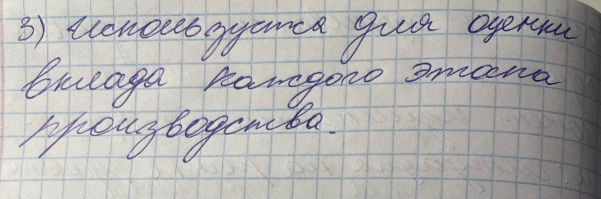 3) Используется для оценки
вклада каждого этапа
производства.